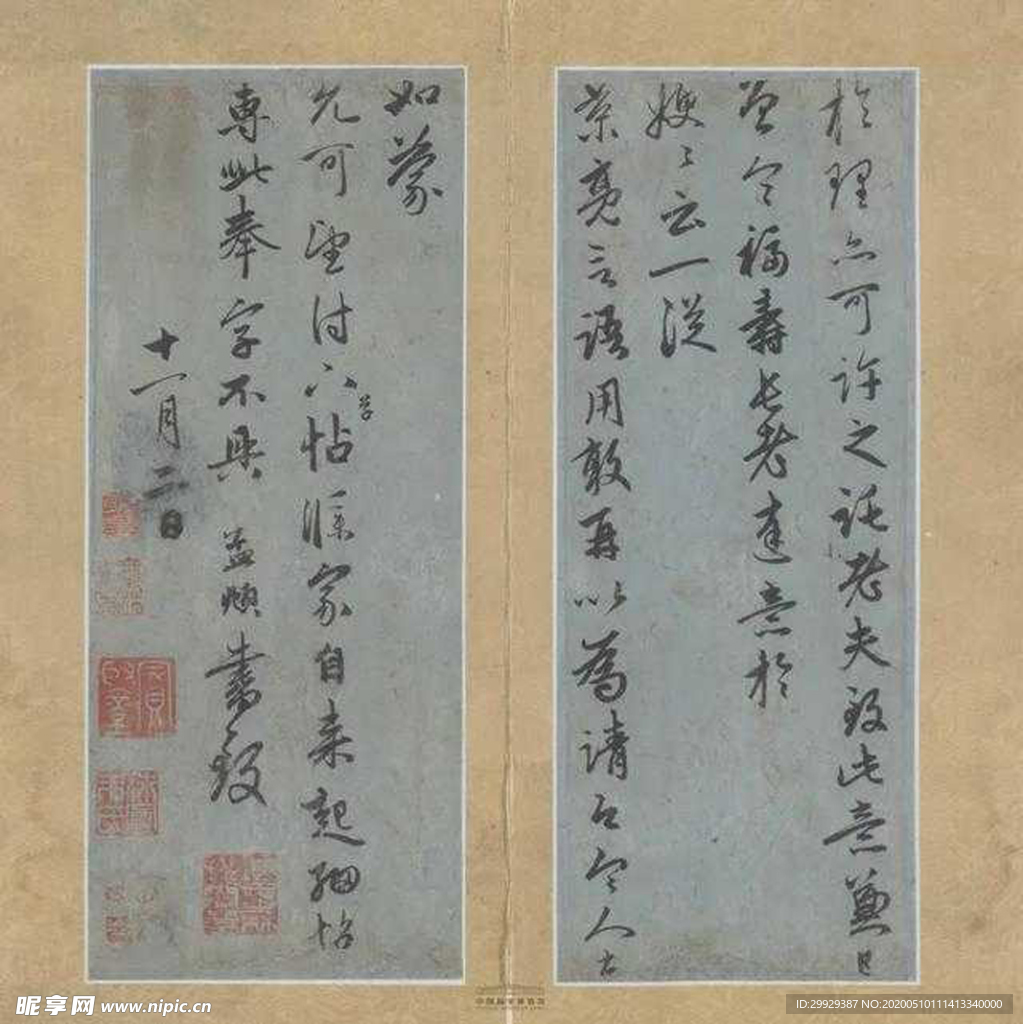 於理亦可許之託老夫致此意兼已
曾令福壽長老達意於
嫂々云一從
葉亮言語用敢再以為請可令人去
如蒙
允可望付下一字帖歸家自来起細帖
專此奉字不具 孟頫書致
十一月二日
昵享网 www.nipic.cn
ID:29929387 NO:20200510111413340000